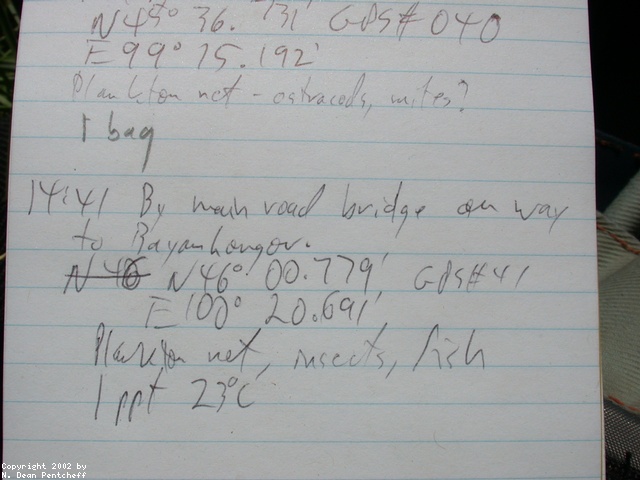 N 45° 36.731' GPS# 040
E 99° 15.192'
Plankton net - ostracods, mites?
1 bag
14:41 By main road bridge on way
to Bayanhongor.
N 46 N46° 00.779', GPS#41
E 100° 20.691'
Plankton net, insects, fish
1 ppt 23°C
Copyright 2002 by
N. Dean Pentcheff